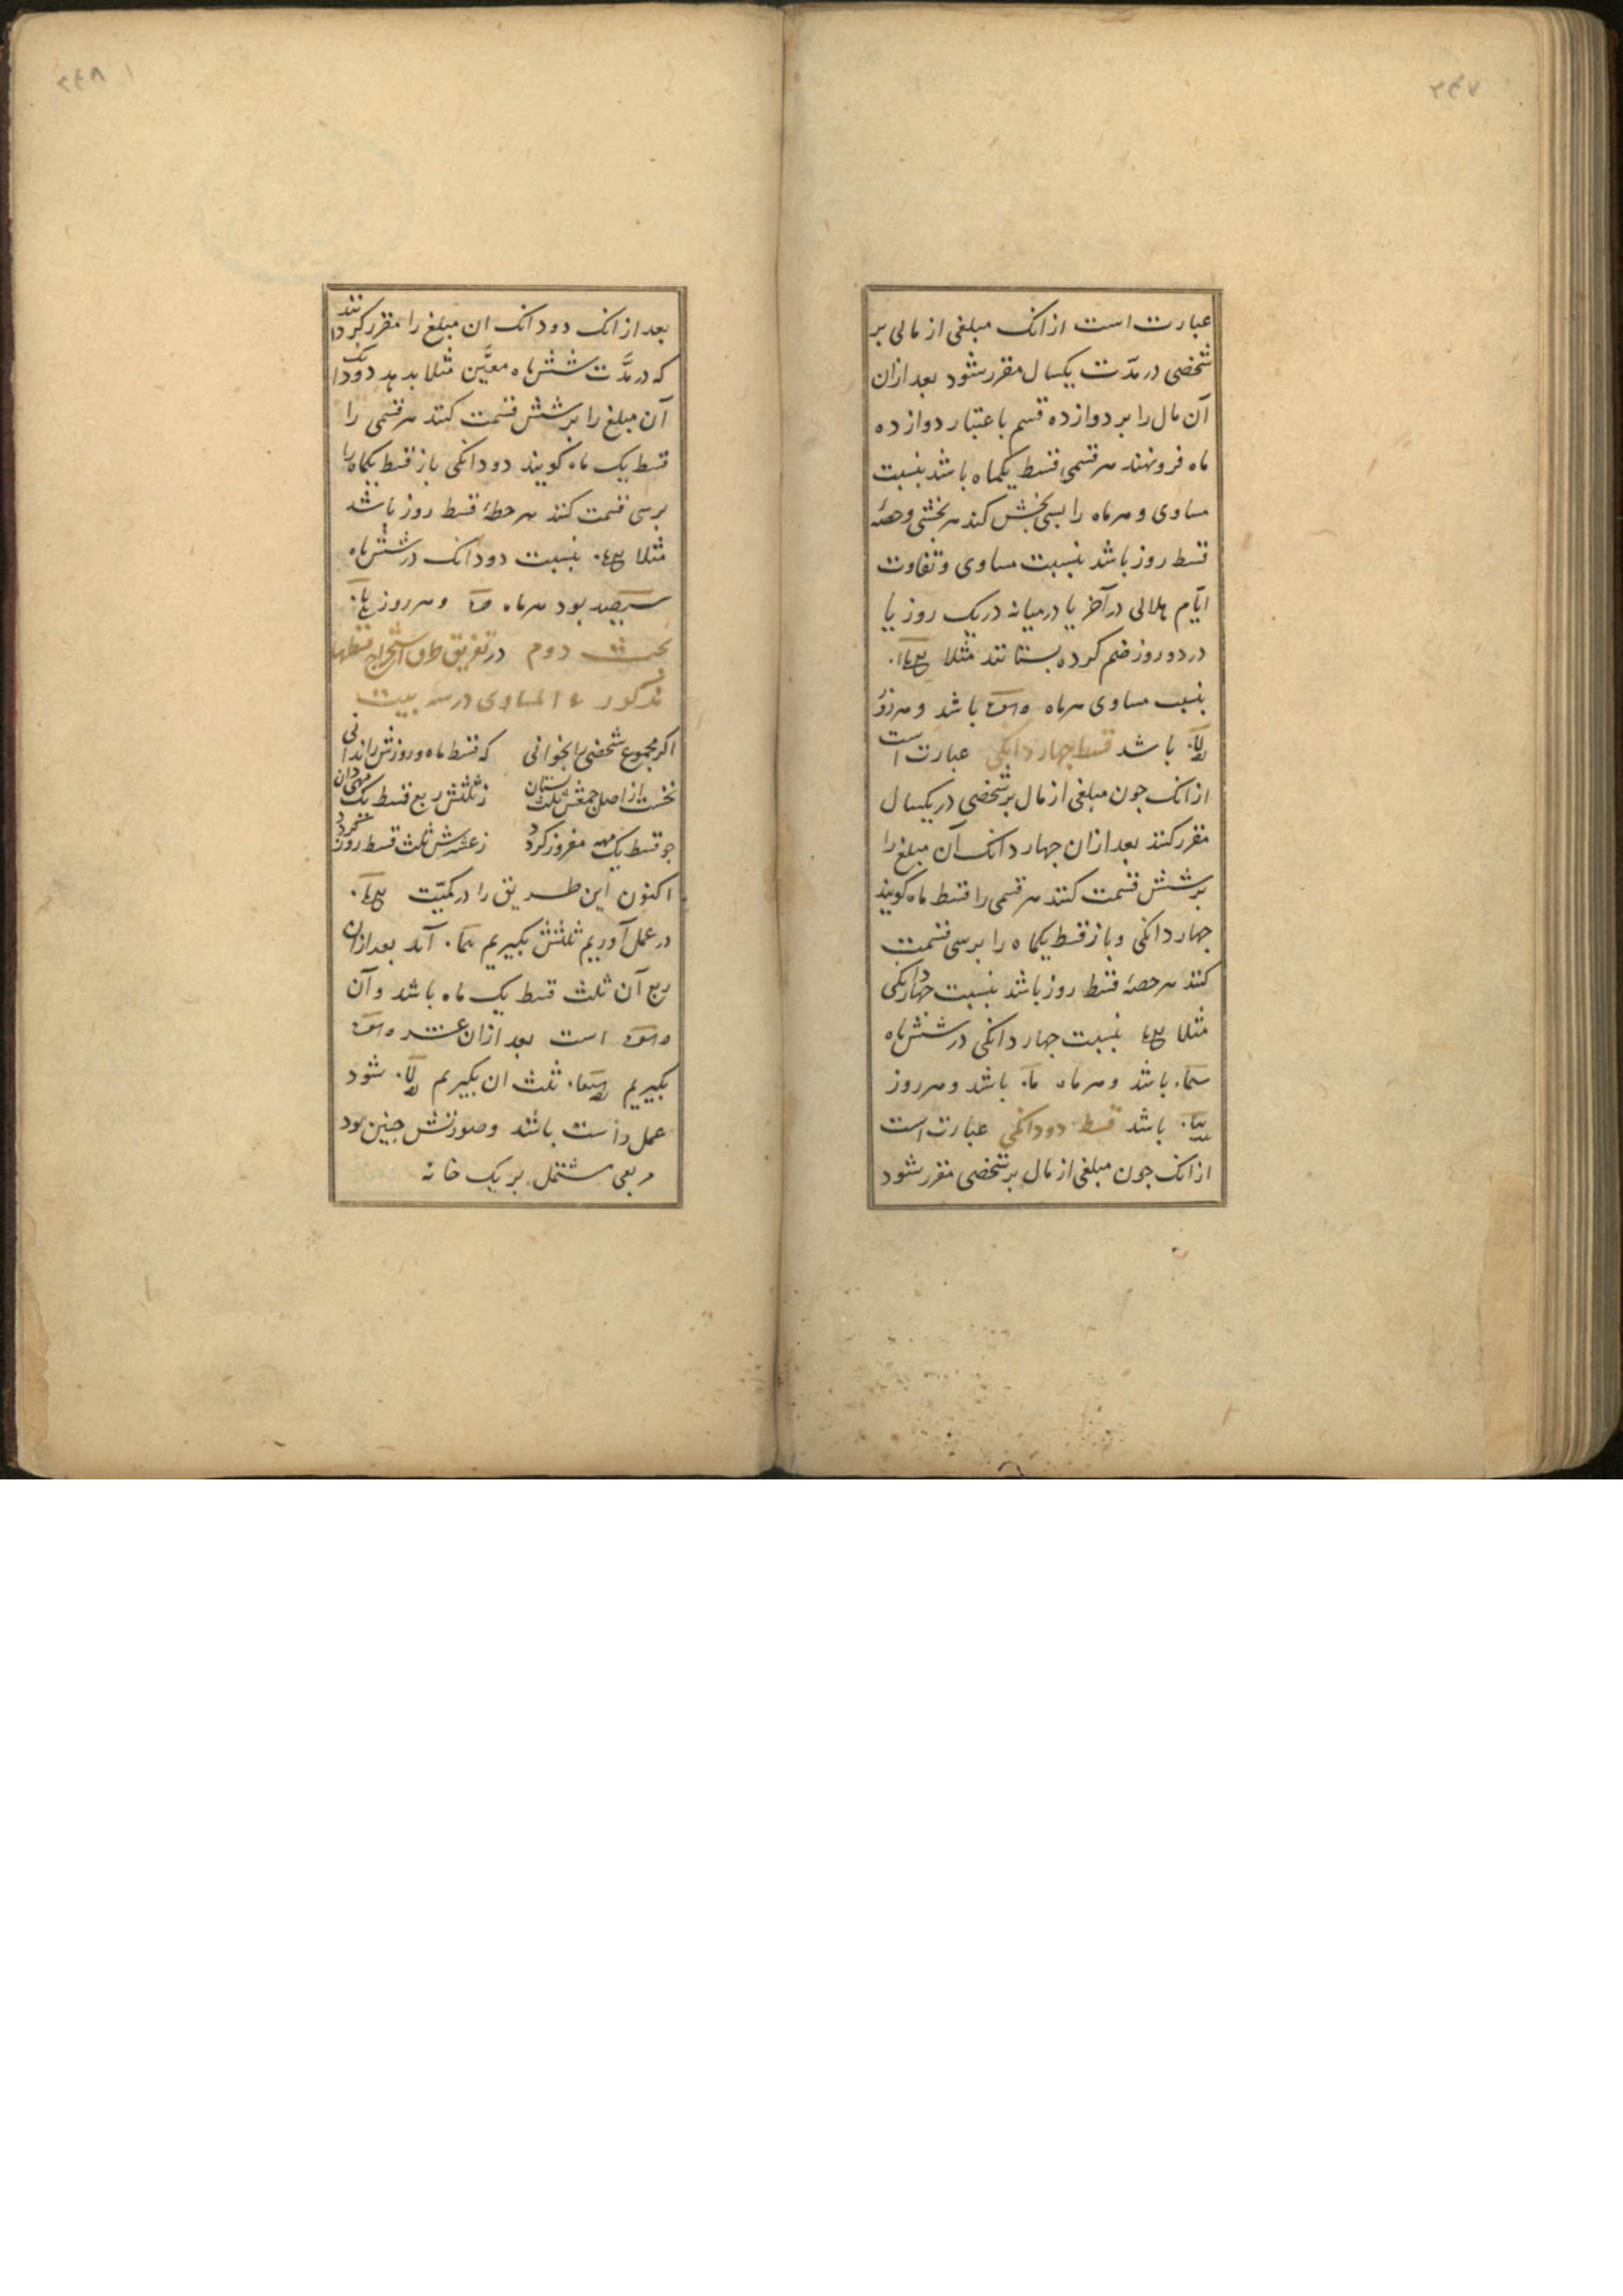 ۲۴۷
عبارت است از انک مبلغی از مالی بر
شخصی در مدّت یکسال مقرر شود بعد ازان
آن مال را بر دوازده قسم باعتبار دوازده
ماه فرو نهند هر قسمی قسط یکماه باشد بنسبت
مساوی و هر ماه را بسی بخش کند هر بخشی و حصهٔ
قسط روز باشد بنسبت مساوی و تفاوت
ایّام هلالی در آخر یا در میانه در یک روز یا
در دو روز ضم کرده بستانند مثلا
بنسبت مساوی هر ماه باشد و هر روز
باشد قسط چهار دانکی عبارت است
از انک جون مبلغی از مال بر شخصی در یکسال
مقرر کنند بعد ازان جهار دانک آن مبلغ را
بر شش قسمت کنند هر قسمی را قسط ماه کویند
جهار دانکی و باز قسط یکماه را بر سی قسمت
کنند هر حصهٔ قسط روز باشد بنسبت جهار دانکی
مثلا بنسبت جهار دانکی در شش ماه
باشد و هر ماه باشد و هر روز
باشد قسط دو دانکی عبارت است
از انک جون مبلغی از مال بر شخصی مقرر شود
۲۴۸
بعد از انک دو دانک ان مبلغ را مقرر کردانند
که در مدَّت شش ماه معیَّن مثلا بدهد دو دانک
آن مبلغ را بر شش قسمت کنند هر قسمی را
قسط یک ماه کویند دو دانکی باز قسط یکماه را
بر سی قسمت کنند هر حطهٔ قسط روز باشد
مثلا بنسبت دو دانک در شش ماه
سیصد بود هر ماه و هر روز
بحث دوم در تفریق طرق استخراج قسطهاء
مذکور المساوی در سه بیت
اکر مجموع شخصی را بخوانی که قسط ماه و روزش را ندانی
نخست از اصل جمعش ثلث بستان ز ثلثش ربع قسط یک مهی دان
جو قسط یک مهه مفروز کردد ز عشرش ثلث قسط روز کردد
اکنون این طریق را در کمیّت
در عمل آوریم ثلثش بکیریم آید بعد ازان
ربع آن ثلث قسط یک ماه باشد و آن
است بعد ازان عشر
بکیریم ثلث ان بکیریم شود
عمل راست باشد و صورتش جنین بود
مربعی مشتمل بر یک خانه